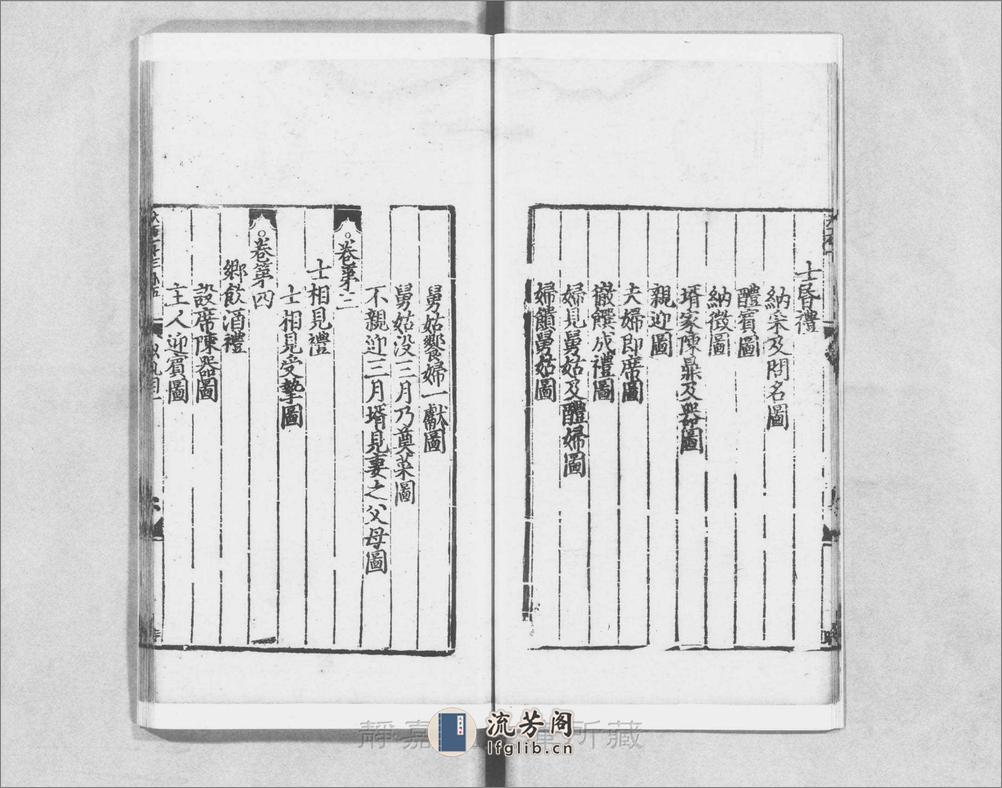 士昏禮
納采及問名圖
醴賓圖
納徵圖
壻家陳鼎及器圖
親迎圖
夫婦即席圖
徹饌成禮圖
婦見舅姑及醴婦圖
婦饋舅姑圖
舅姑饗婦一獻圖
舅姑没三月乃奠菜圖
不親迎三月壻見妻之父母圖
卷第三
士相見禮
士相見受摯圖
卷第四
鄉飲酒禮
設席陳器圖
主人迎賓圖
靜嘉 所藏
流芳阁
lfglib.cn